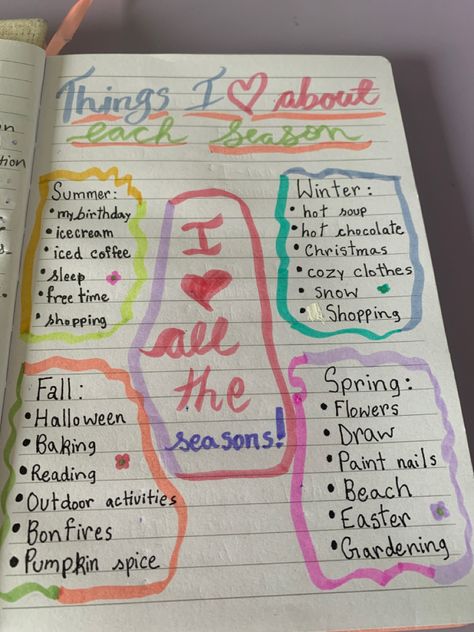 Things I ♡ about
each season
Summer:
• my birthday
• icecream
• iced coffee
• sleep
• free time
• shopping
I
♥
all
the
seasons!
Winter:
• hot soup
• hot chocolate
• Christmas
• cozy clothes
• snow
• Shopping
Fall:
• Halloween
• Baking
• Reading
• Outdoor activities
• Bonfires
• Pumpkin spice
Spring:
• Flowers
• Draw
• Paint nails
• Beach
• Easter
• Gardening